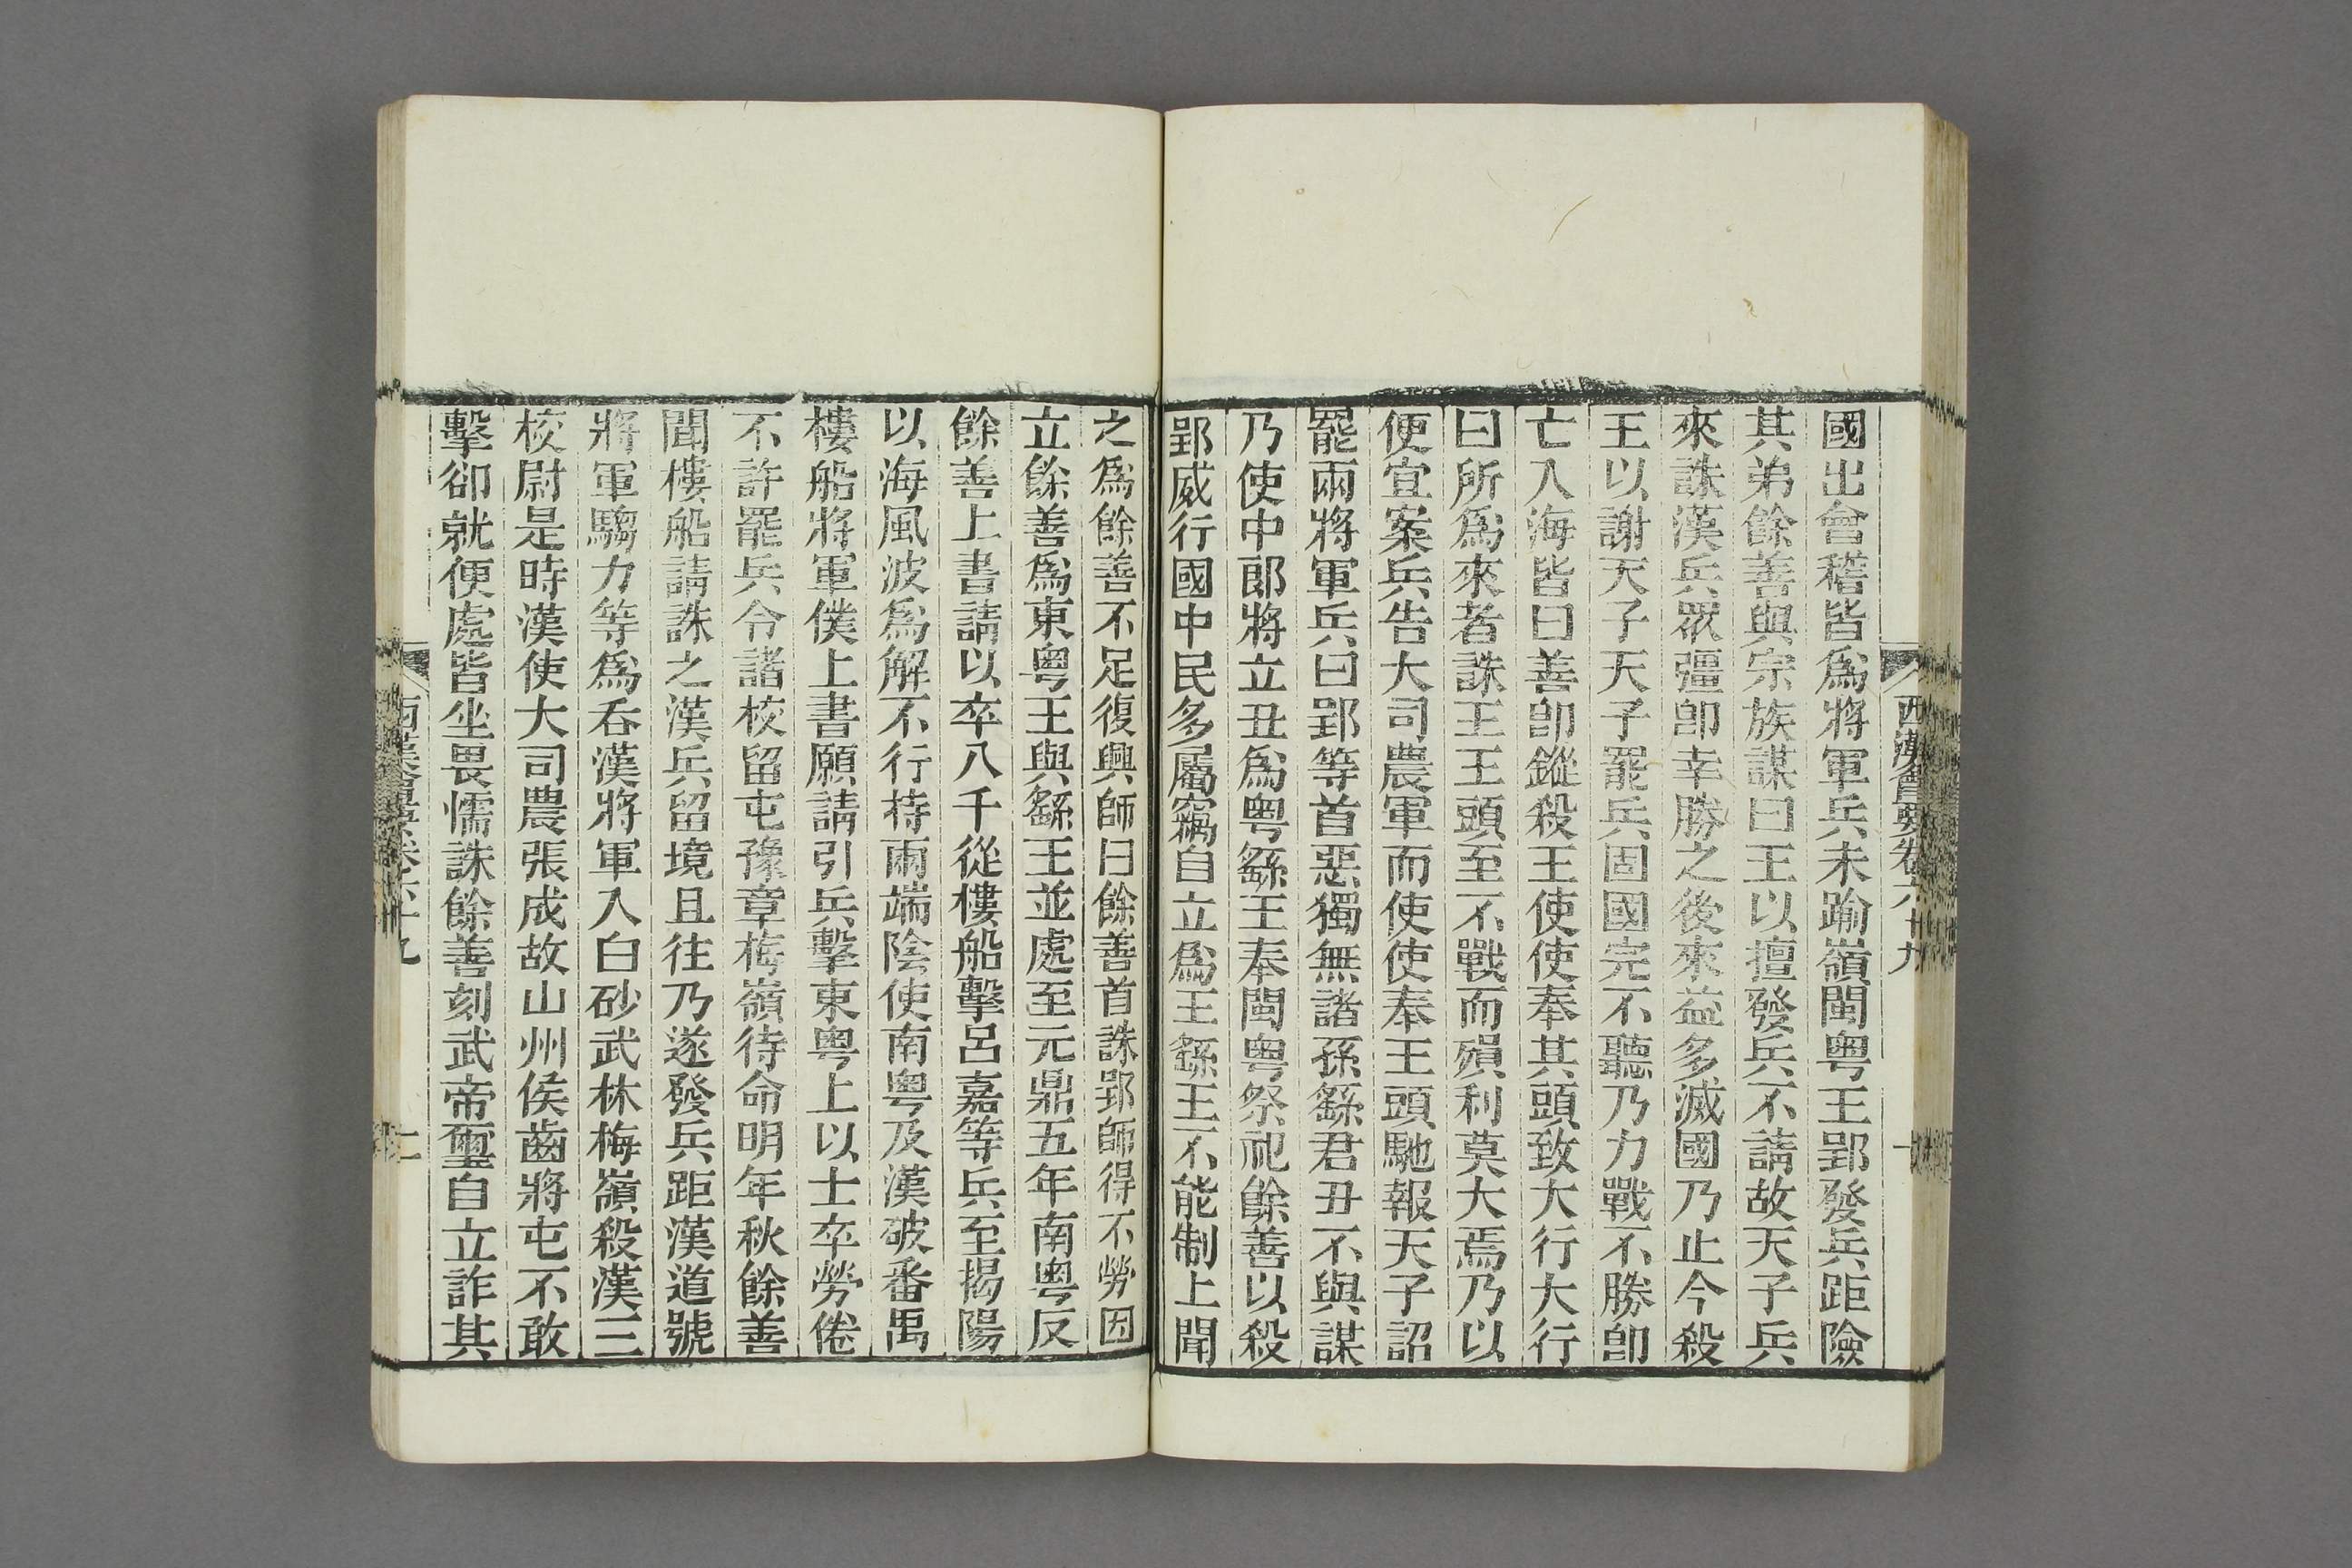 西漢會要卷六十九
國出會稽皆爲將軍兵未踰嶺閩粤王郢發兵距險
其弟餘善與宗族謀曰王以擅發兵不請故天子兵
來誅漢兵眾彊卽幸勝之後來益多滅國乃止今殺
王以謝天子天子罷兵固國完不聽乃力戰不勝卽
亡入海皆曰善卽鏦殺王使使奉其頭致大行大行
曰所爲來者誅王王頭至不戰而殞利莫大焉乃以
便宜案兵告大司農軍而使使奉王頭馳報天子詔
罷兩將軍兵曰郢等首惡獨無諸孫繇君丑不與謀
乃使中郎將立丑爲粤繇王奉閩粤祭祀餘善以殺
郢威行國中民多屬竊自立爲王繇王不能制上聞
之爲餘善不足復興師曰餘善首誅郢師得不勞因
立餘善爲東粤王與繇王並處至元鼎五年南粤反
餘善上書請以卒八千從樓船擊呂嘉等兵至揭陽
以海風波爲解不行持兩端陰使南粤及漢破番禺
樓船將軍僕上書願請引兵擊東粤上以士卒勞倦
不許罷兵令諸校留屯豫章梅嶺待命明年秋餘善
聞樓船請誅之漢兵留境且往乃遂發兵距漢道號
將軍騶力等爲吞漢將軍入白砂武林梅嶺殺漢三
校尉是時漢使大司農張成故山州侯齒將屯不敢
擊卻就便處皆坐畏懦誅餘善刻武帝璽自立詐其
西漢會要卷六十九